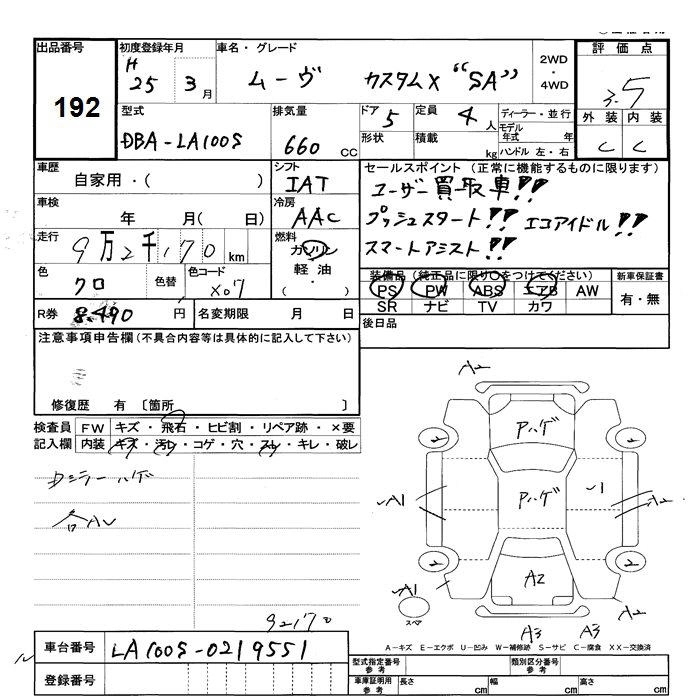 出品番号
192
初度登録年月
H 25 3月
車名・グレード
ムーヴ カスタムX "SA"
2WD・4WD
評価点
3.5
外装 内装
C C
型式
DBA-LA100S
排気量
660 CC
ドア 5
形状
定員 4人
積載 kg
ディーラー・並行
モデル年式 年
ハンドル 左・右
車歴
自家用・( )
シフト
IAT
セールスポイント (正常に機能するものに限ります)
ユーザー買取車!!
プッシュスタート!! エコアイドル!!
スマートアシスト!!
車検 年 月( 日)
冷房
AAC
走行 9万2千170 km
燃料
ガソリン
軽油・
( )
色 クロ 色替 色コード X07
装備品(純正品に限り〇をつけてください)
PS PW ABS エアB AW
SR ナビ TV カワ
新車保証書
有・無
R券 8.490 円 名変期限 月 日
後日品
注意事項申告欄(不具合内容等は具体的に記入して下さい)
修復歴 有 〔箇所 〕
検査員記入欄
FW キズ・飛石・ヒビ割・リペア跡・×要
内装 キズ・汚レ・コゲ・穴・スレ・キレ・破レ
Dミラーハゲ
各AU
A2
Pハゲ
2 2
A1 Pハゲ 1 A2
2 2
A1 A2 A2
スペア
A3 A3
92170
A-キズ E-エクボ U-凹み W-補修跡 S-サビ C-腐食 XX-交換済
車台番号 LA100S-0219551
登録番号
型式指定番号 参考
類別区分番号 参考
車庫証明用 参考 長さ cm 幅 cm 高さ cm